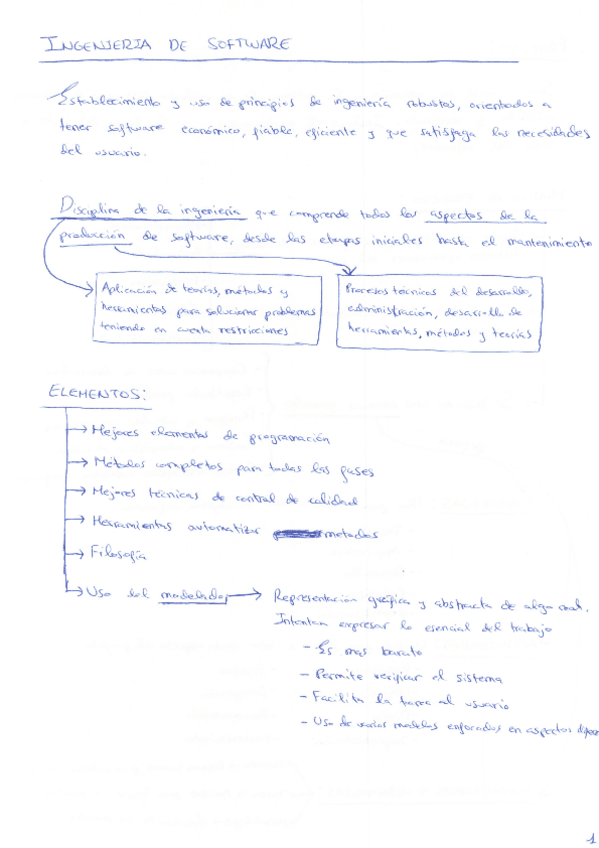 INGENIERIA DE SOFTWARE
Establecimiento y uso de principios de ingeniería robustos, orientados a
tener software económico, fiable, eficiente y que satisfaga las necesidades
del usuario.
Disciplina de la ingeniería que comprende todos los aspectos de la
producción de software, desde las etapas iniciales hasta el mantenimiento
Aplicación de teorías, métodos y
herramientas para solucionar problemas
teniendo en cuenta restricciones
Procesos técnicos del desarrollo,
administración, desarrollo de
herramientas, métodos y teorías
ELEMENTOS:
→ Mejores elementos de programación
→ Métodos completos para todas las fases
→ Mejores técnicas de control de calidad
→ Herramientas automatizar metodos
→ Filosofía
→ Uso del modelado → Representación gráfica y abstracta de algo real.
Intentan expresar lo esencial del trabajo
- Es mas barato
- Permite verificar el sistema
- Facilita la tarea al usuario
- Uso de varios modelos enfocados en aspectos
1